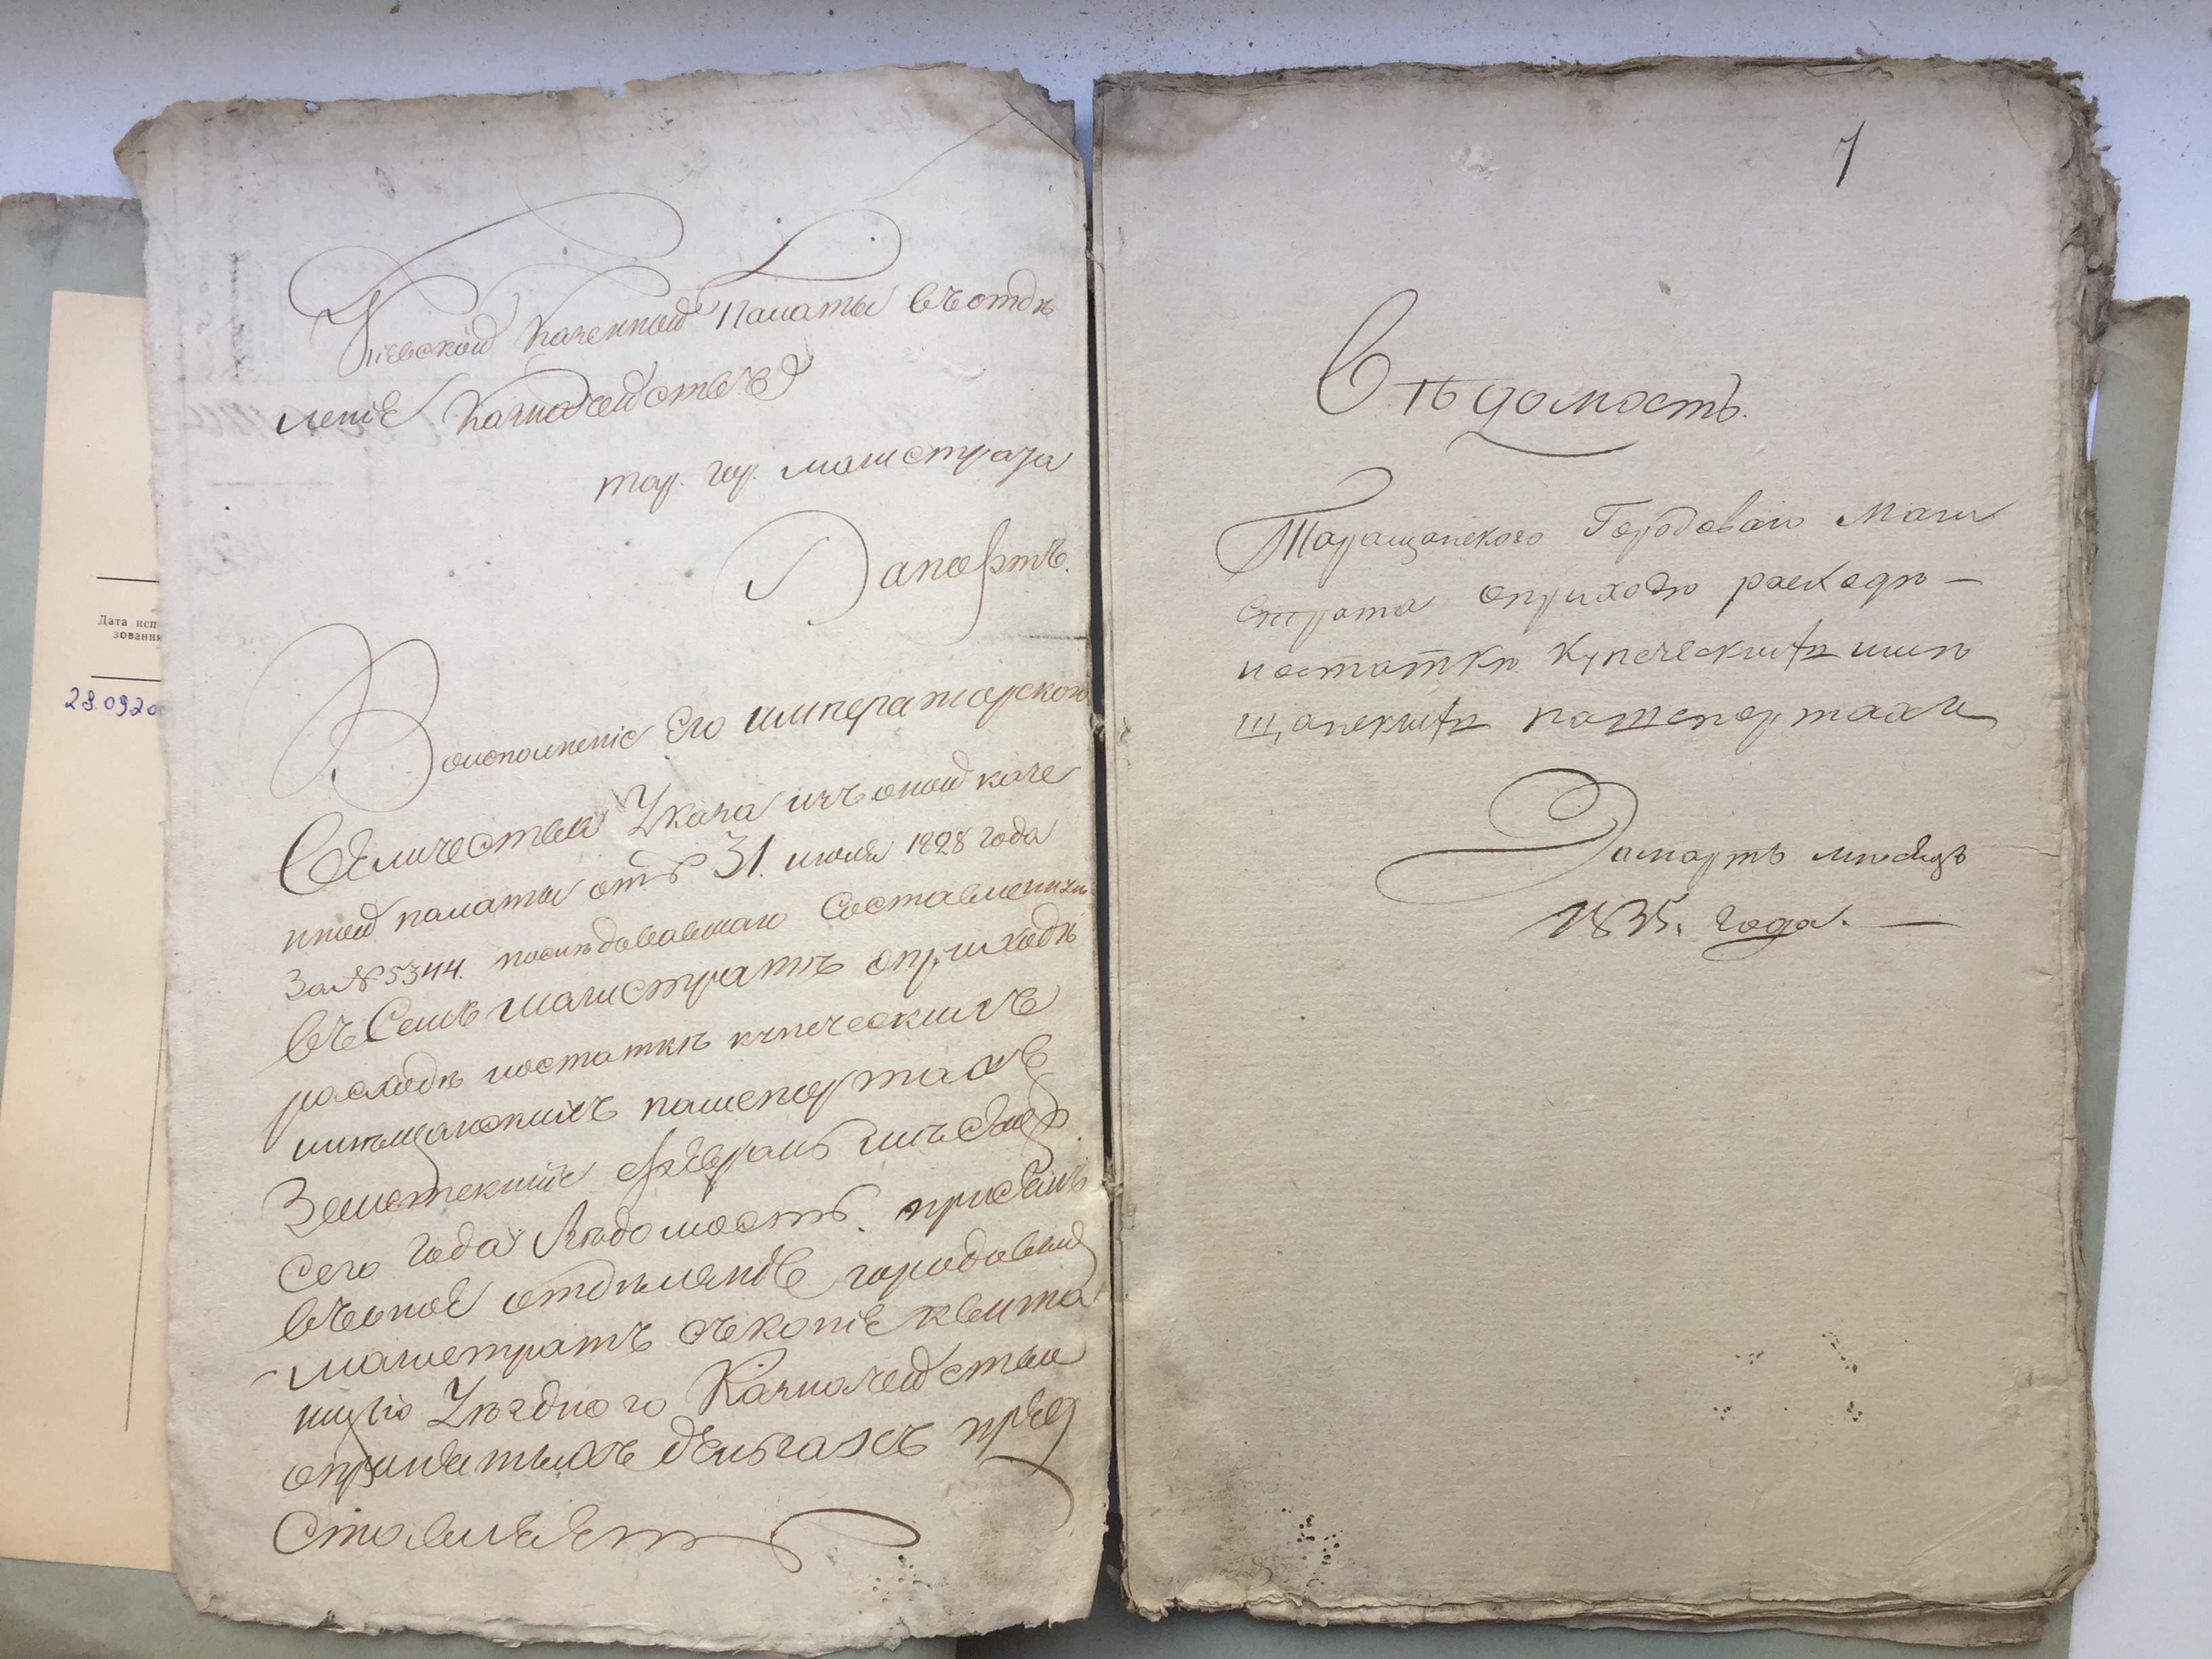 Дата исп
зования
28.0920
Кіевской Казенной Палаты въ отдѣ
леніе Казначействъ
тар. гор. магистрата
Рапортъ.
Воисполненіе Его императорскаго
Величества Указа изъ оной казе
нной палаты отъ 31. июля 1828 года
За № 5344. последовавшаго Составленную
въ Семъ магистратѣ оприходѣ
расходѣ иостаткѣ купеческихъ
имѣщанскихъ пашпортахъ
Заистекшій февраль мѣсяцъ
сего года Ведомость. присемъ
въоное отдѣленіе городовый
магистратъ съкопіе квита
нціи Уѣзднаго Казначейства
опринятыхъ деньгахъ пред
Ставляетъ
1
Вѣдомость.
Таращанского Городоваго Маги
страта оприходѣ расходѣ —
иостаткѣ купеческихъ имѣ
щанскихъ пашпортахъ
Замартъ мѣсяцъ
1835. года. —